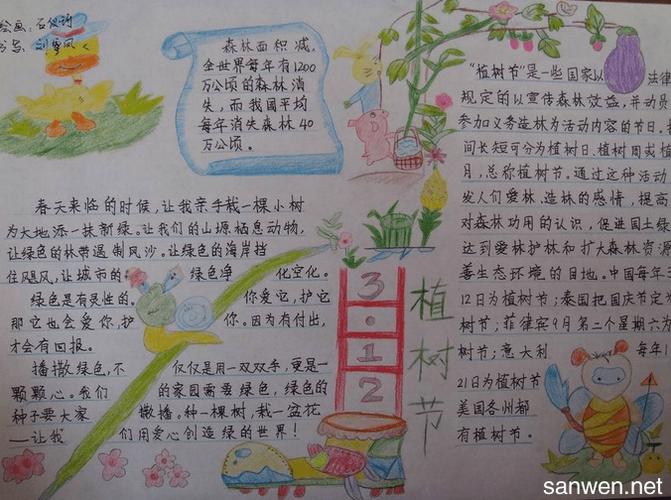 绘画：石
书写：刘雪凤
森林面积减，
全世界每年有1200
万公顷的森林消
失，而我国平均
每年消失森林40
万公顷。
春天来临的时候，让我亲手栽一棵小树
为大地添一抹新绿。让我们的山塬栖息动物，
让绿色的林带遏制风沙。让绿色的海岸挡
住飓风，让城市的绿色净化空化。
绿色是有灵性的。你爱它，护它
那它也会爱你，护你。因为有付出，
才会有回报。
播撒绿色，不仅仅是用一双双手，更是一
颗颗心。我们的家园需要绿色，绿色的
种子要大家撒播。种一棵树，栽一盆花
——让我们用爱心创造绿的世界！
3·12
植树节
“植树节”是一些国家以法律
规定的以宣传森林效益，并动员
参加义务造林为活动内容的节日。
间长短可分为植树日、植树周或植
月，总称植树节。通过这种活动
发人们爱林、造林的感情，提高
对森林功用的认识，促进国土绿
达到爱林护林和扩大森林资源
善生态环境的目地。中国每年
12日为植树节；泰国把国庆节定
树节；菲律宾9月第二个星期六为
树节；意大利每年1
21日为植树节
美国各州都
有植树节。
sanwen.net